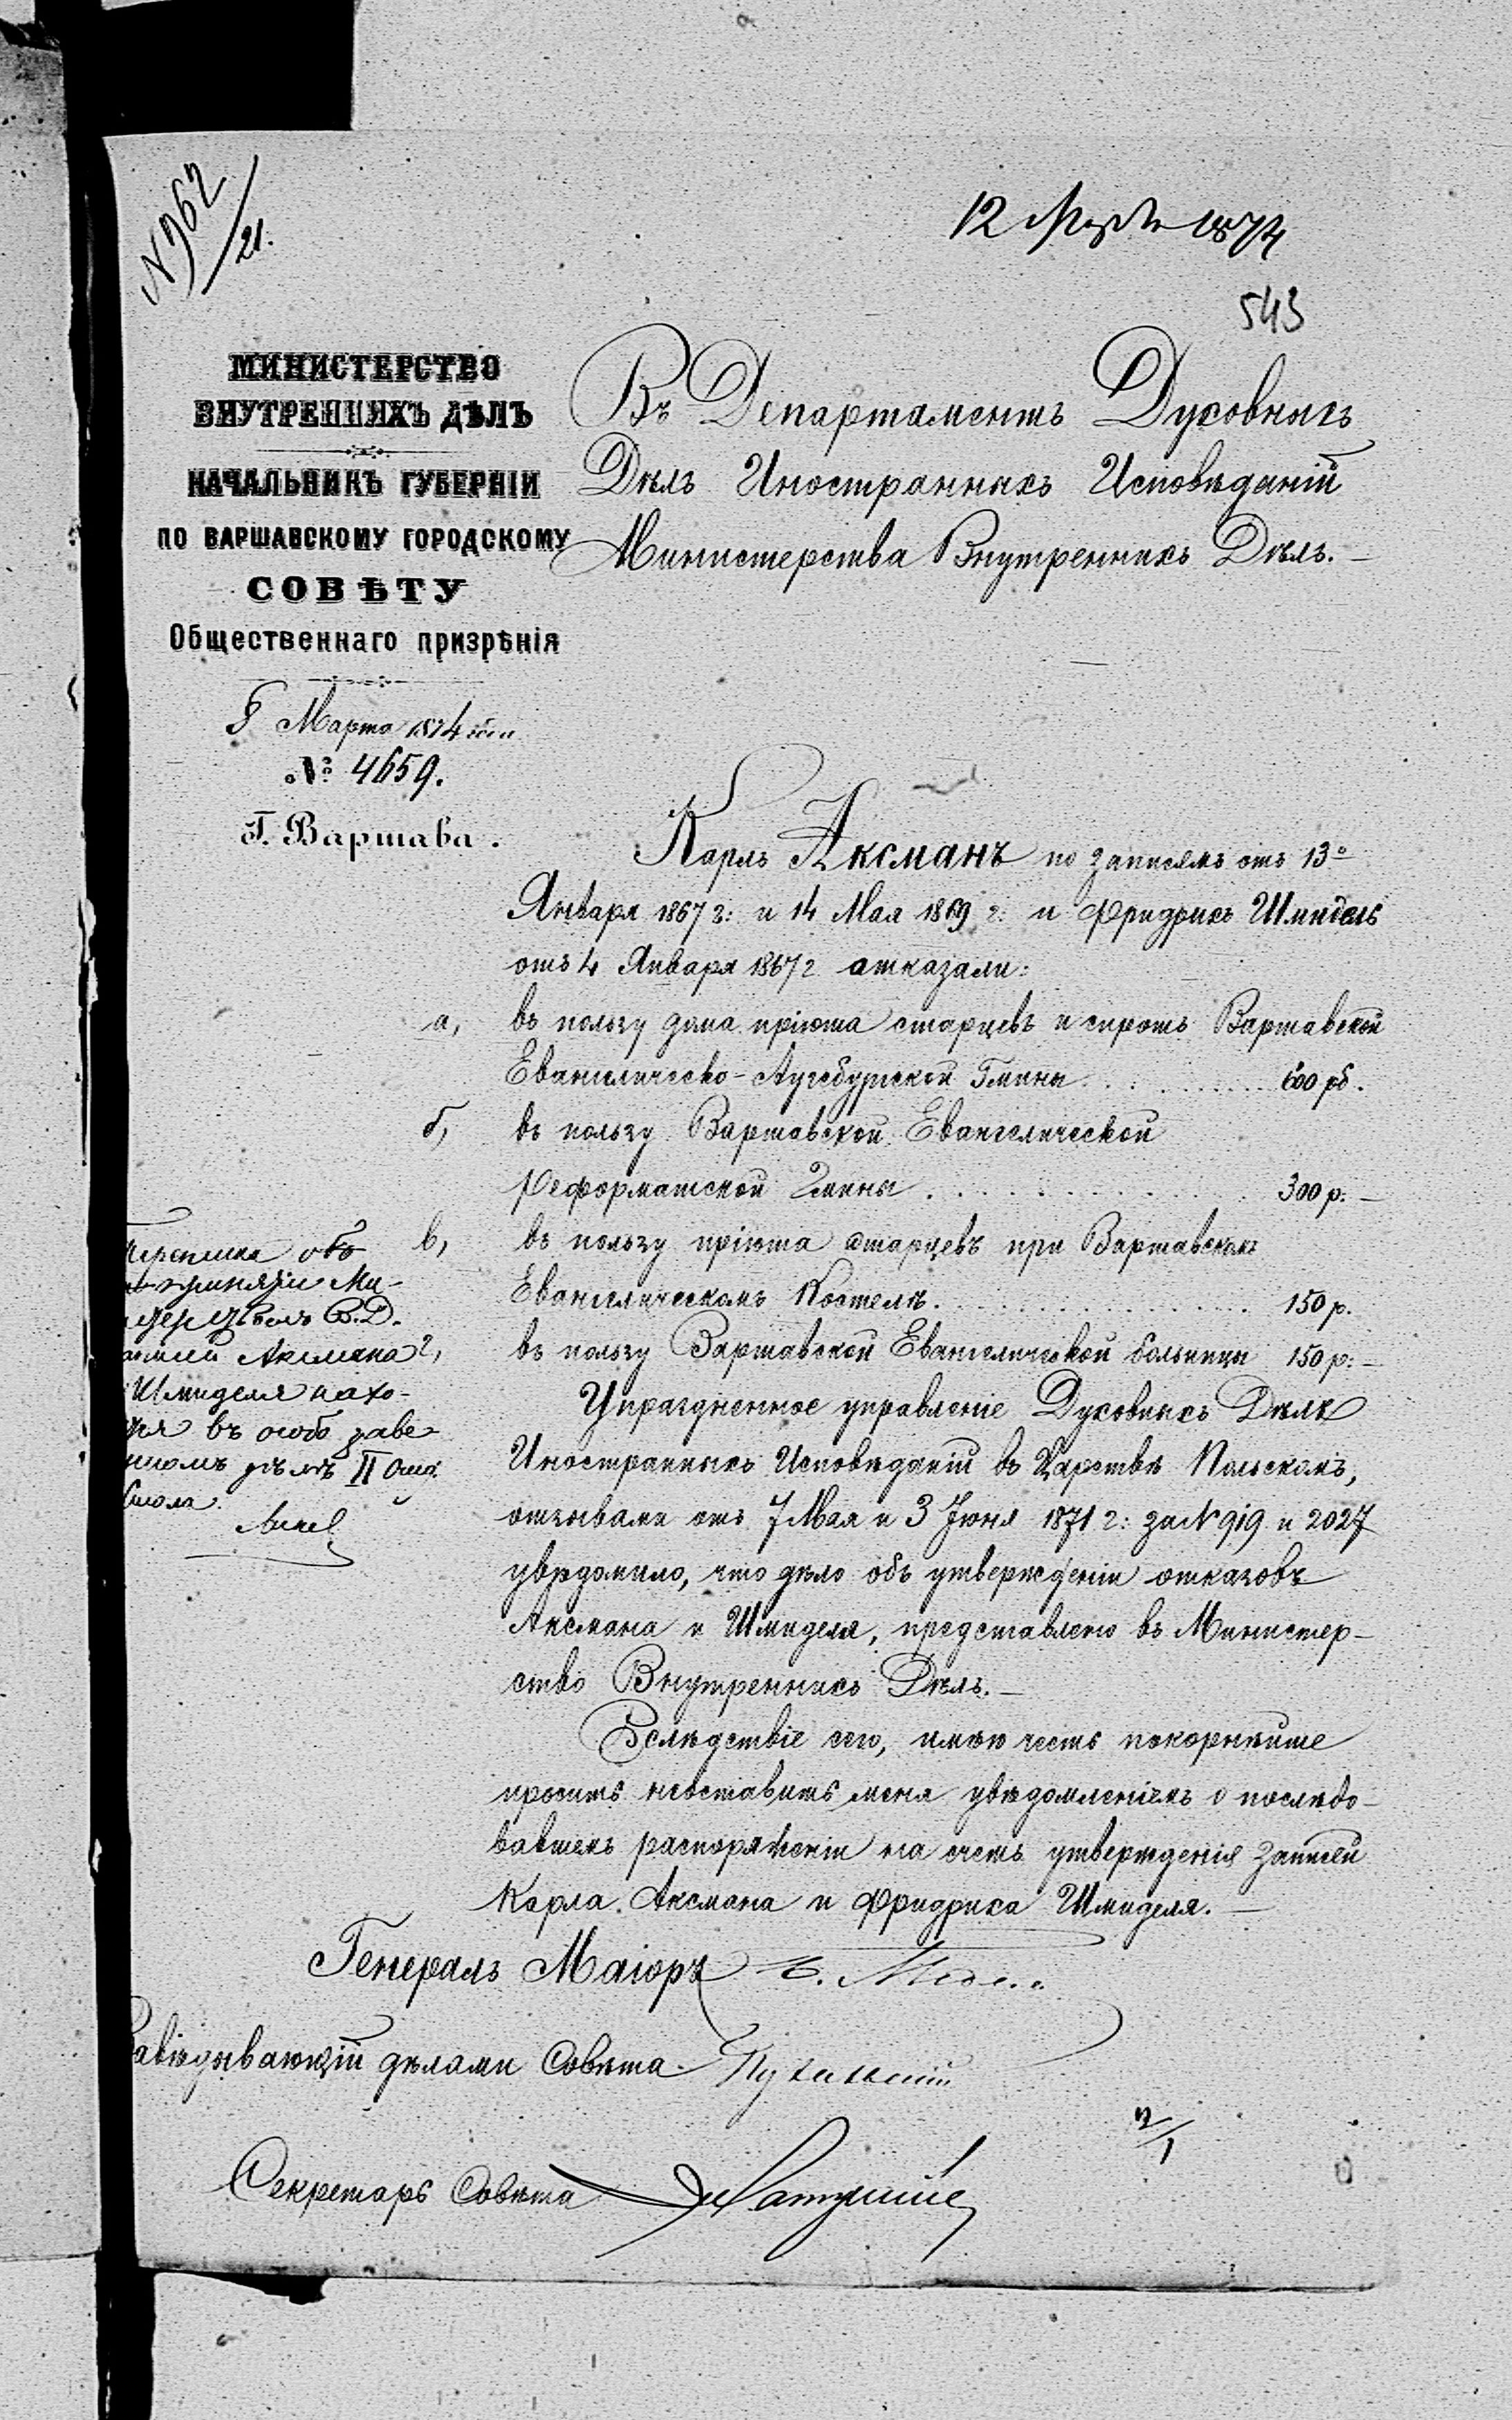 N 962/21.
12 Марта 1874
543
МИНИСТЕРСТВО
ВНУТРЕННИХЪ ДѢЛЪ
НАЧАЛЬНИКЪ ГУБЕРНІИ
ПО ВАРШАВСКОМУ ГОРОДСКОМУ
СОВѢТУ
Общественнаго призрѣнія
Марта 1874 года
№ 4659.
Г. Варшава.
Въ Департаментъ Духовныхъ
Дѣлъ Иностранныхъ Исповѣданій
Министерства Внутреннихъ Дѣлъ.—
Карлъ Аксманъ по записямъ отъ 13°
Января 1867 г: и 14 Мая 1869 г: и Фридрихъ Шмидель
отъ 4 Января 1867 г отказали:
а, въ пользу дома пріюта старцевъ и сиротъ Варшавской
Евангелическо-Аугсбургской Гмины . . . . . 600 рб.
б, въ пользу Варшавской Евангелической
Реформатской Гмины . . . . . 300 р:—
в, въ пользу пріюта старцевъ при Варшавскомъ
Евангелическомъ Костелѣ . . . . . 150 р.
г, въ пользу Варшавской Евангелической больницы 150 р:—
Упраздненное управленіе Духовныхъ Дѣлъ
Иностранныхъ Исповѣданій въ Царствѣ Польскомъ,
отзывами отъ 7 Мая и 3 Іюня 1871 г: за N 919 и 2027
увѣдомило, что дѣло объ утвержденіи отказовъ
Аксмана и Шмиделя, представлено въ Министер-
ство Внутреннихъ Дѣлъ.—
Вслѣдствіе сего, имѣю честь покорнѣйше
просить неоставить меня увѣдомленіемъ о послѣдо-
вавшемъ распоряженіи на счетъ утвержденія записей
Карла Аксмана и Фридриха Шмиделя.—
переписка объ
принятіи Ми-
В.Д.
Аксмана
Шмиделя нахо-
въ особо заве-
дѣлѣ II Отд.
стола.
Генералъ Маіоръ
Завѣдывающій дѣлами Совѣта
Секретарь Совѣта